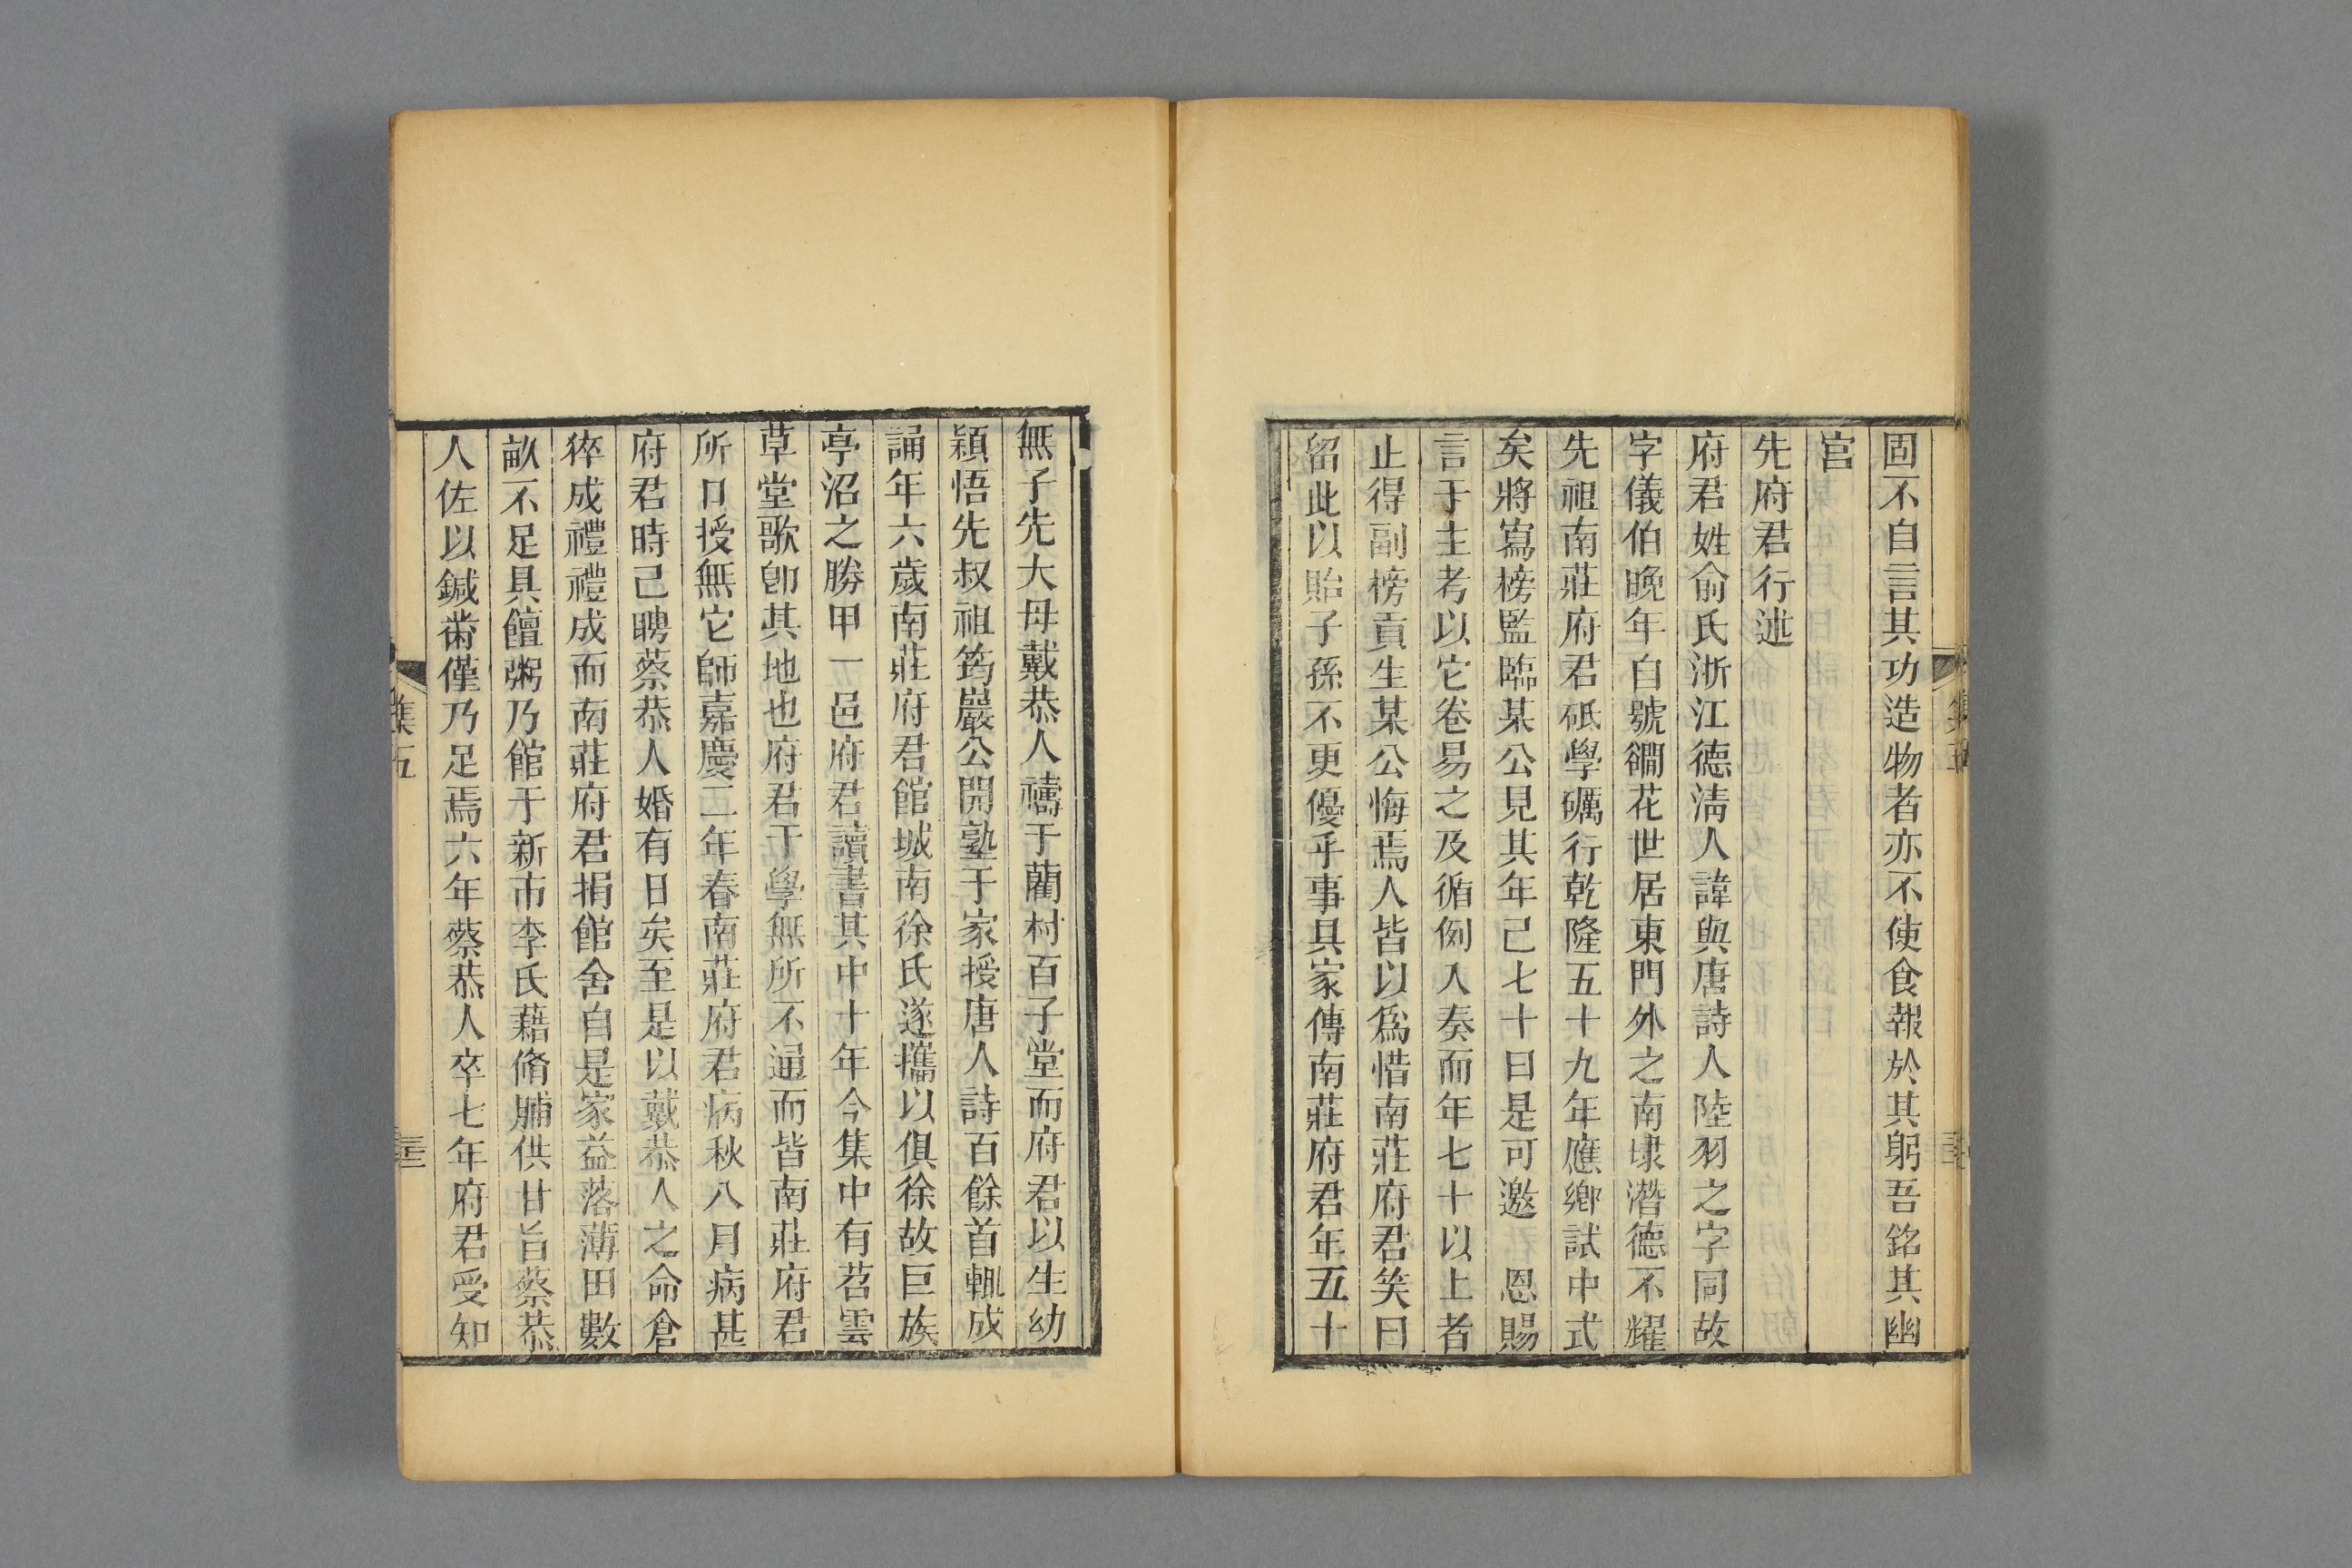 固不自言其功造物者亦不使食報於其躬吾銘其幽
宮
先府君行述
府君姓俞氏浙江德淸人諱與唐詩人陸羽之字同故
字儀伯晚年自號磵花世居東門外之南埭潛德不耀
先祖南莊府君砥學礪行乾隆五十九年應鄉試中式
矣將寫榜監臨某公見其年已七十曰是可邀恩賜
言于主考以它卷易之及循例入奏而年七十以上者
止得副榜貢生某公悔焉人皆以爲惜南莊府君笑曰
留此以貽子孫不更優乎事具家傳南莊府君年五十
無子先大母戴恭人禱于蘭村百子堂而府君以生幼
穎悟先叔祖筠巖公開塾于家授唐人詩百餘首輒成
誦年六歲南莊府君館城南徐氏遂攜以俱徐故巨族
亭沼之勝甲一邑府君讀書其中十年今集中有苕雲
草堂歌卽其地也府君于學無所不通而皆南莊府君
所口授無它師嘉慶二年春南莊府君病秋八月病甚
府君時已聘蔡恭人婚有日矣至是以戴恭人之命倉
猝成禮禮成而南莊府君捐館舍自是家益落薄田數
畝不足具饘粥乃館于新市李氏藉脩脯供甘旨蔡恭
人佐以鍼黹僅乃足焉六年蔡恭人卒七年府君受知
集五